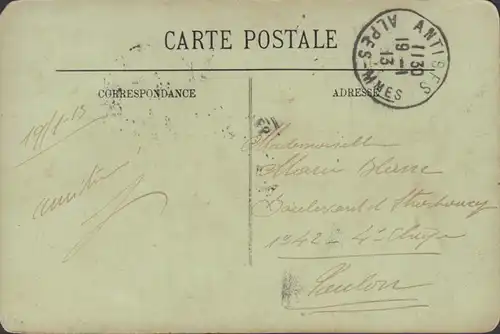 CARTE POSTALE
ANTIBES
11 30
19 - 1
13
ALPES-MMES
CORRESPONDANCE
ADRESSE
19/1-13
Mademoiselle
Marie Blanc
Boulevard d Strasbourg
42 4e Etage
Toulon